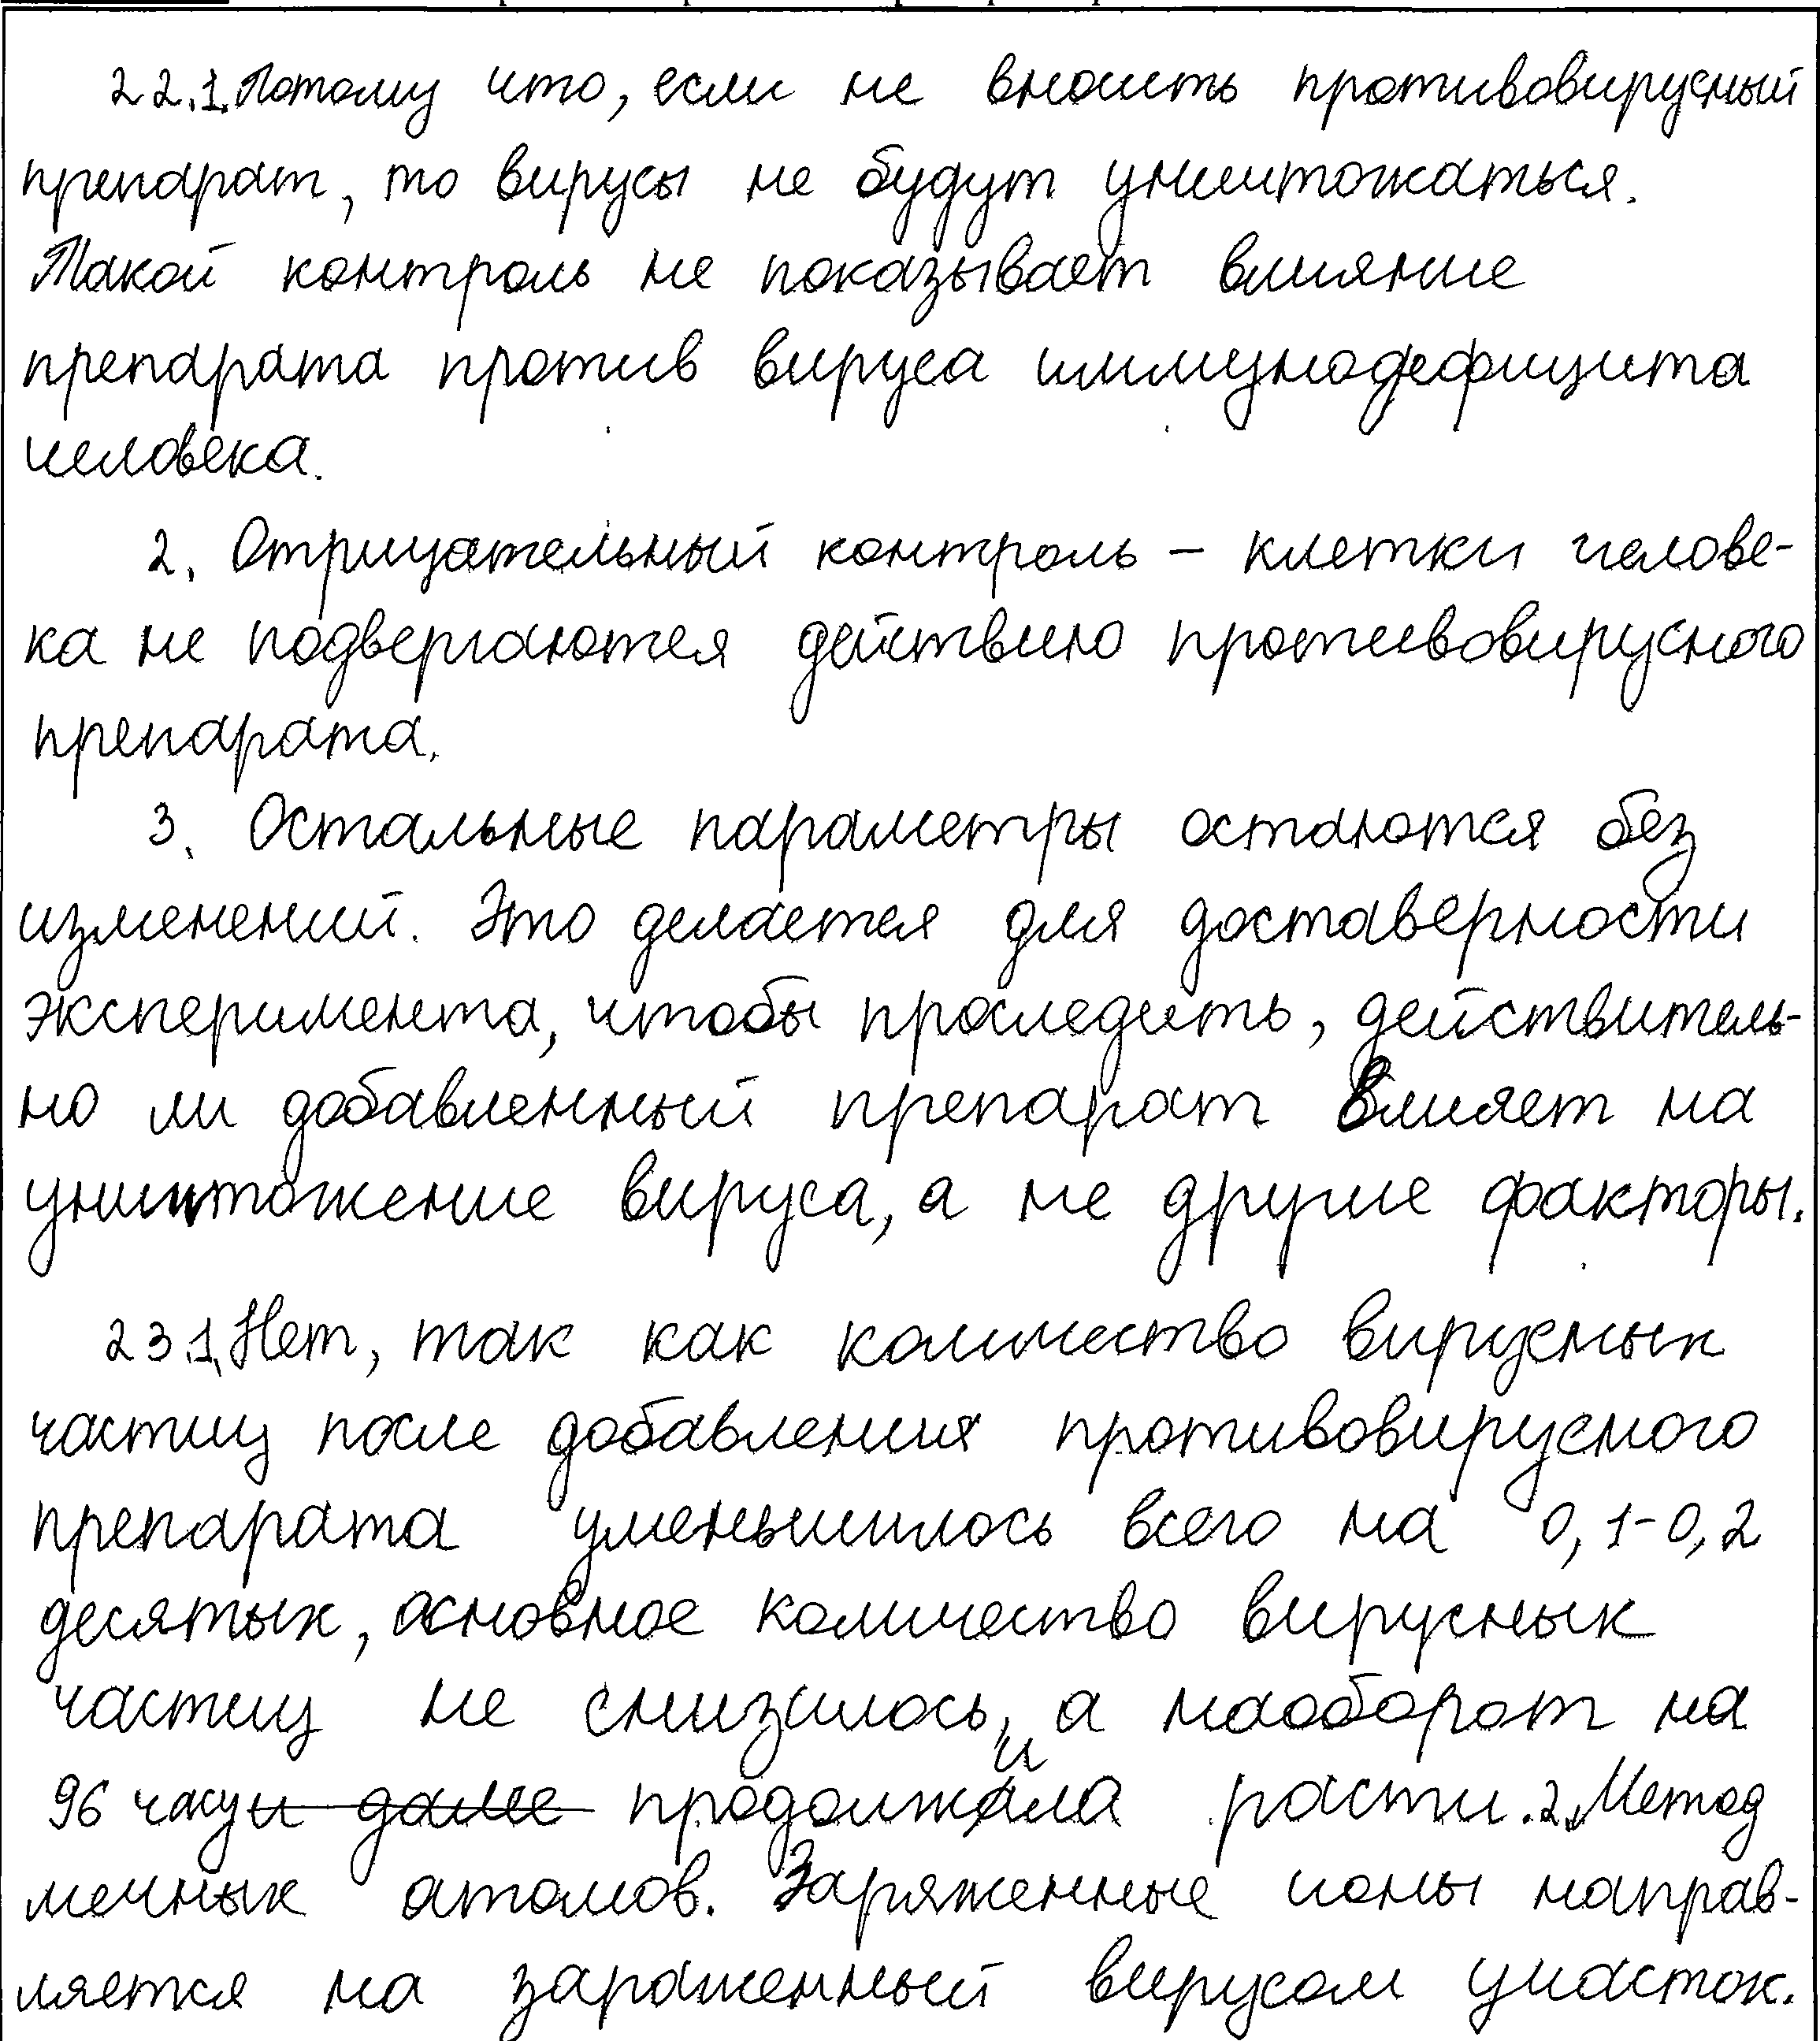 22.1. Потому что, если не вносить противовирусный
препарат, то вирусы не будут уничтожаться.
Такой контроль не показывает влияние
препарата против вируса иммунодефицита
человека.
2. Отрицательный контроль – клетки челове-
ка не подвергаются действию противовирусного
препарата.
3. Остальные параметры остаются без
изменений. Это делается для доставерности
эксперимента, чтобы проследить, действитель-
но ли добавленный препарат влияет на
уничтожение вируса, а не другие факторы.
23.1. Нет, так как количество вирусных
частиц после добавления противовирусного
препарата уменьшилось всего на 0,1-0,2
десятых, основное количество вирусных
частиц не снизилось, а наоборот на
96 часу и далее продолжила расти. 2. Метод
мечных атомов. Заряженные ионы направ-
ляется на зараженный вирусом участок.